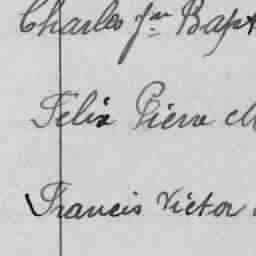 Charles Jn Bapt
Félix Pierre M
Francis Victor